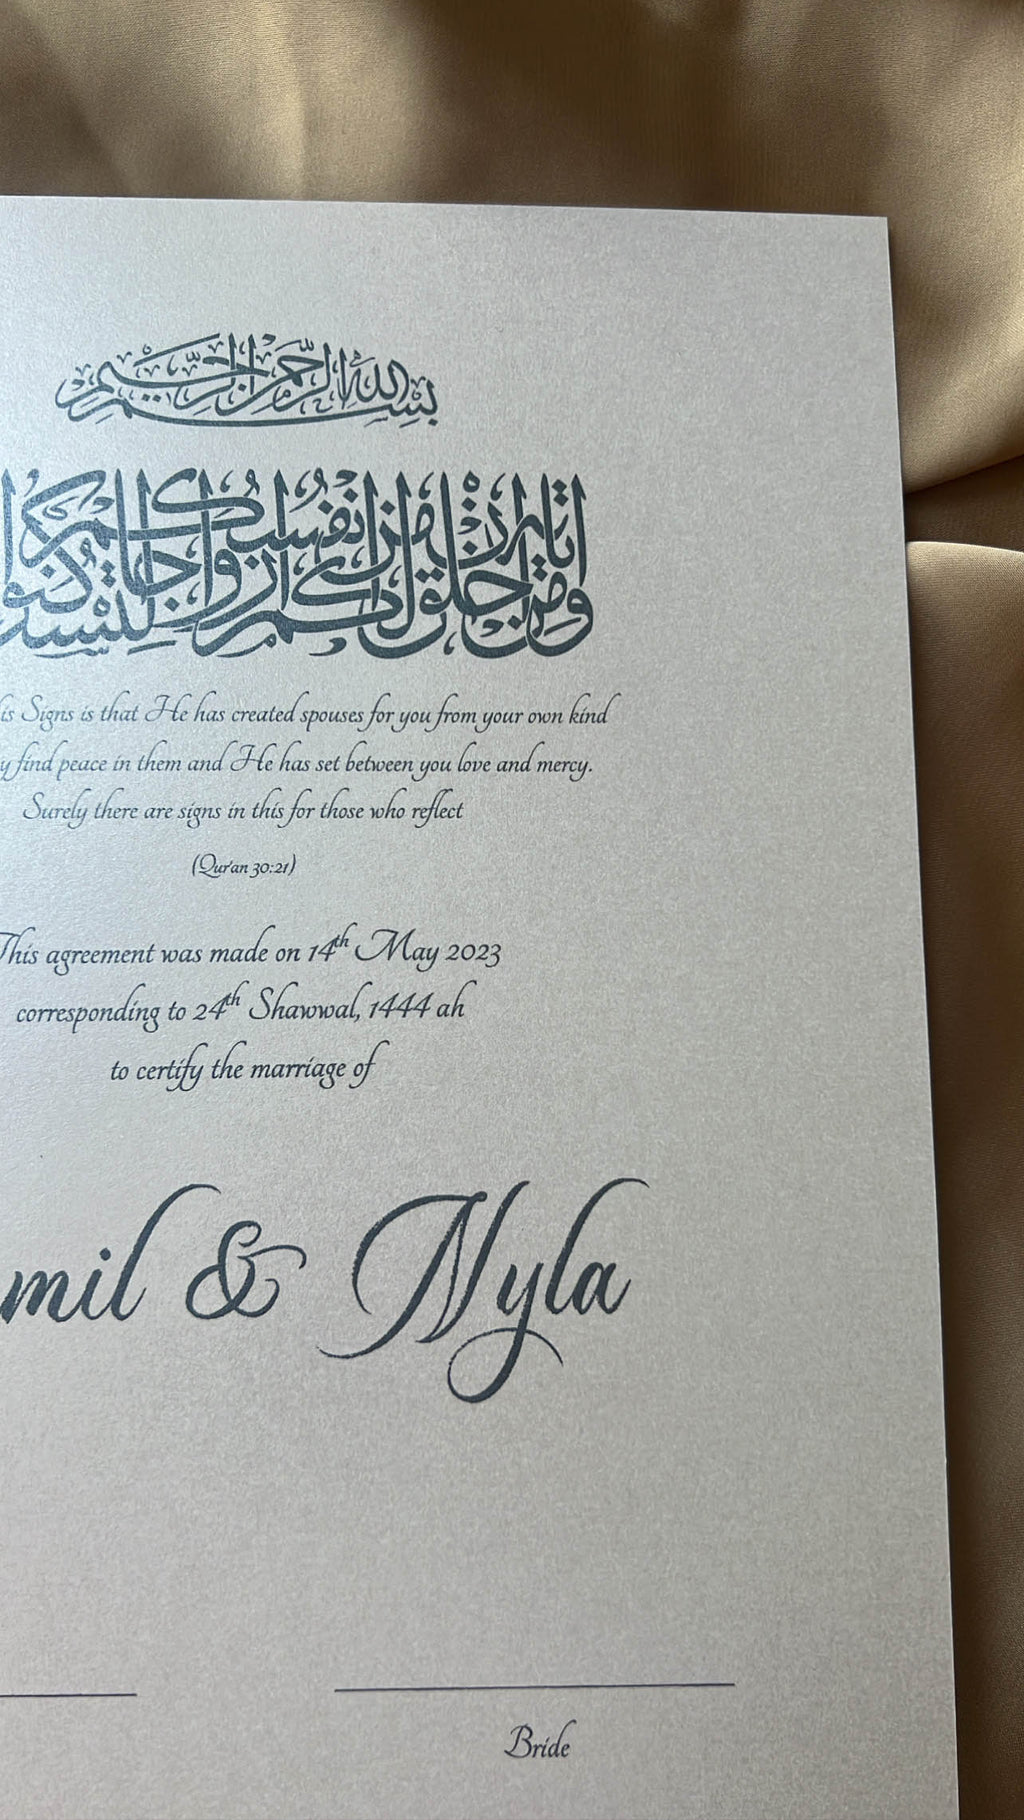 بسم الله الرحمن الرحيم
ومن آياته أن خلق لكم من أنفسكم أزواجا لتسكنوا
is Signs is that He has created spouses for you from your own kind
y find peace in them and He has set between you love and mercy.
Surely there are signs in this for those who reflect
(Qur'an 30:21)
This agreement was made on 14th May 2023
corresponding to 24th Shawwal, 1444 ah
to certify the marriage of
mil & Nyla
Bride